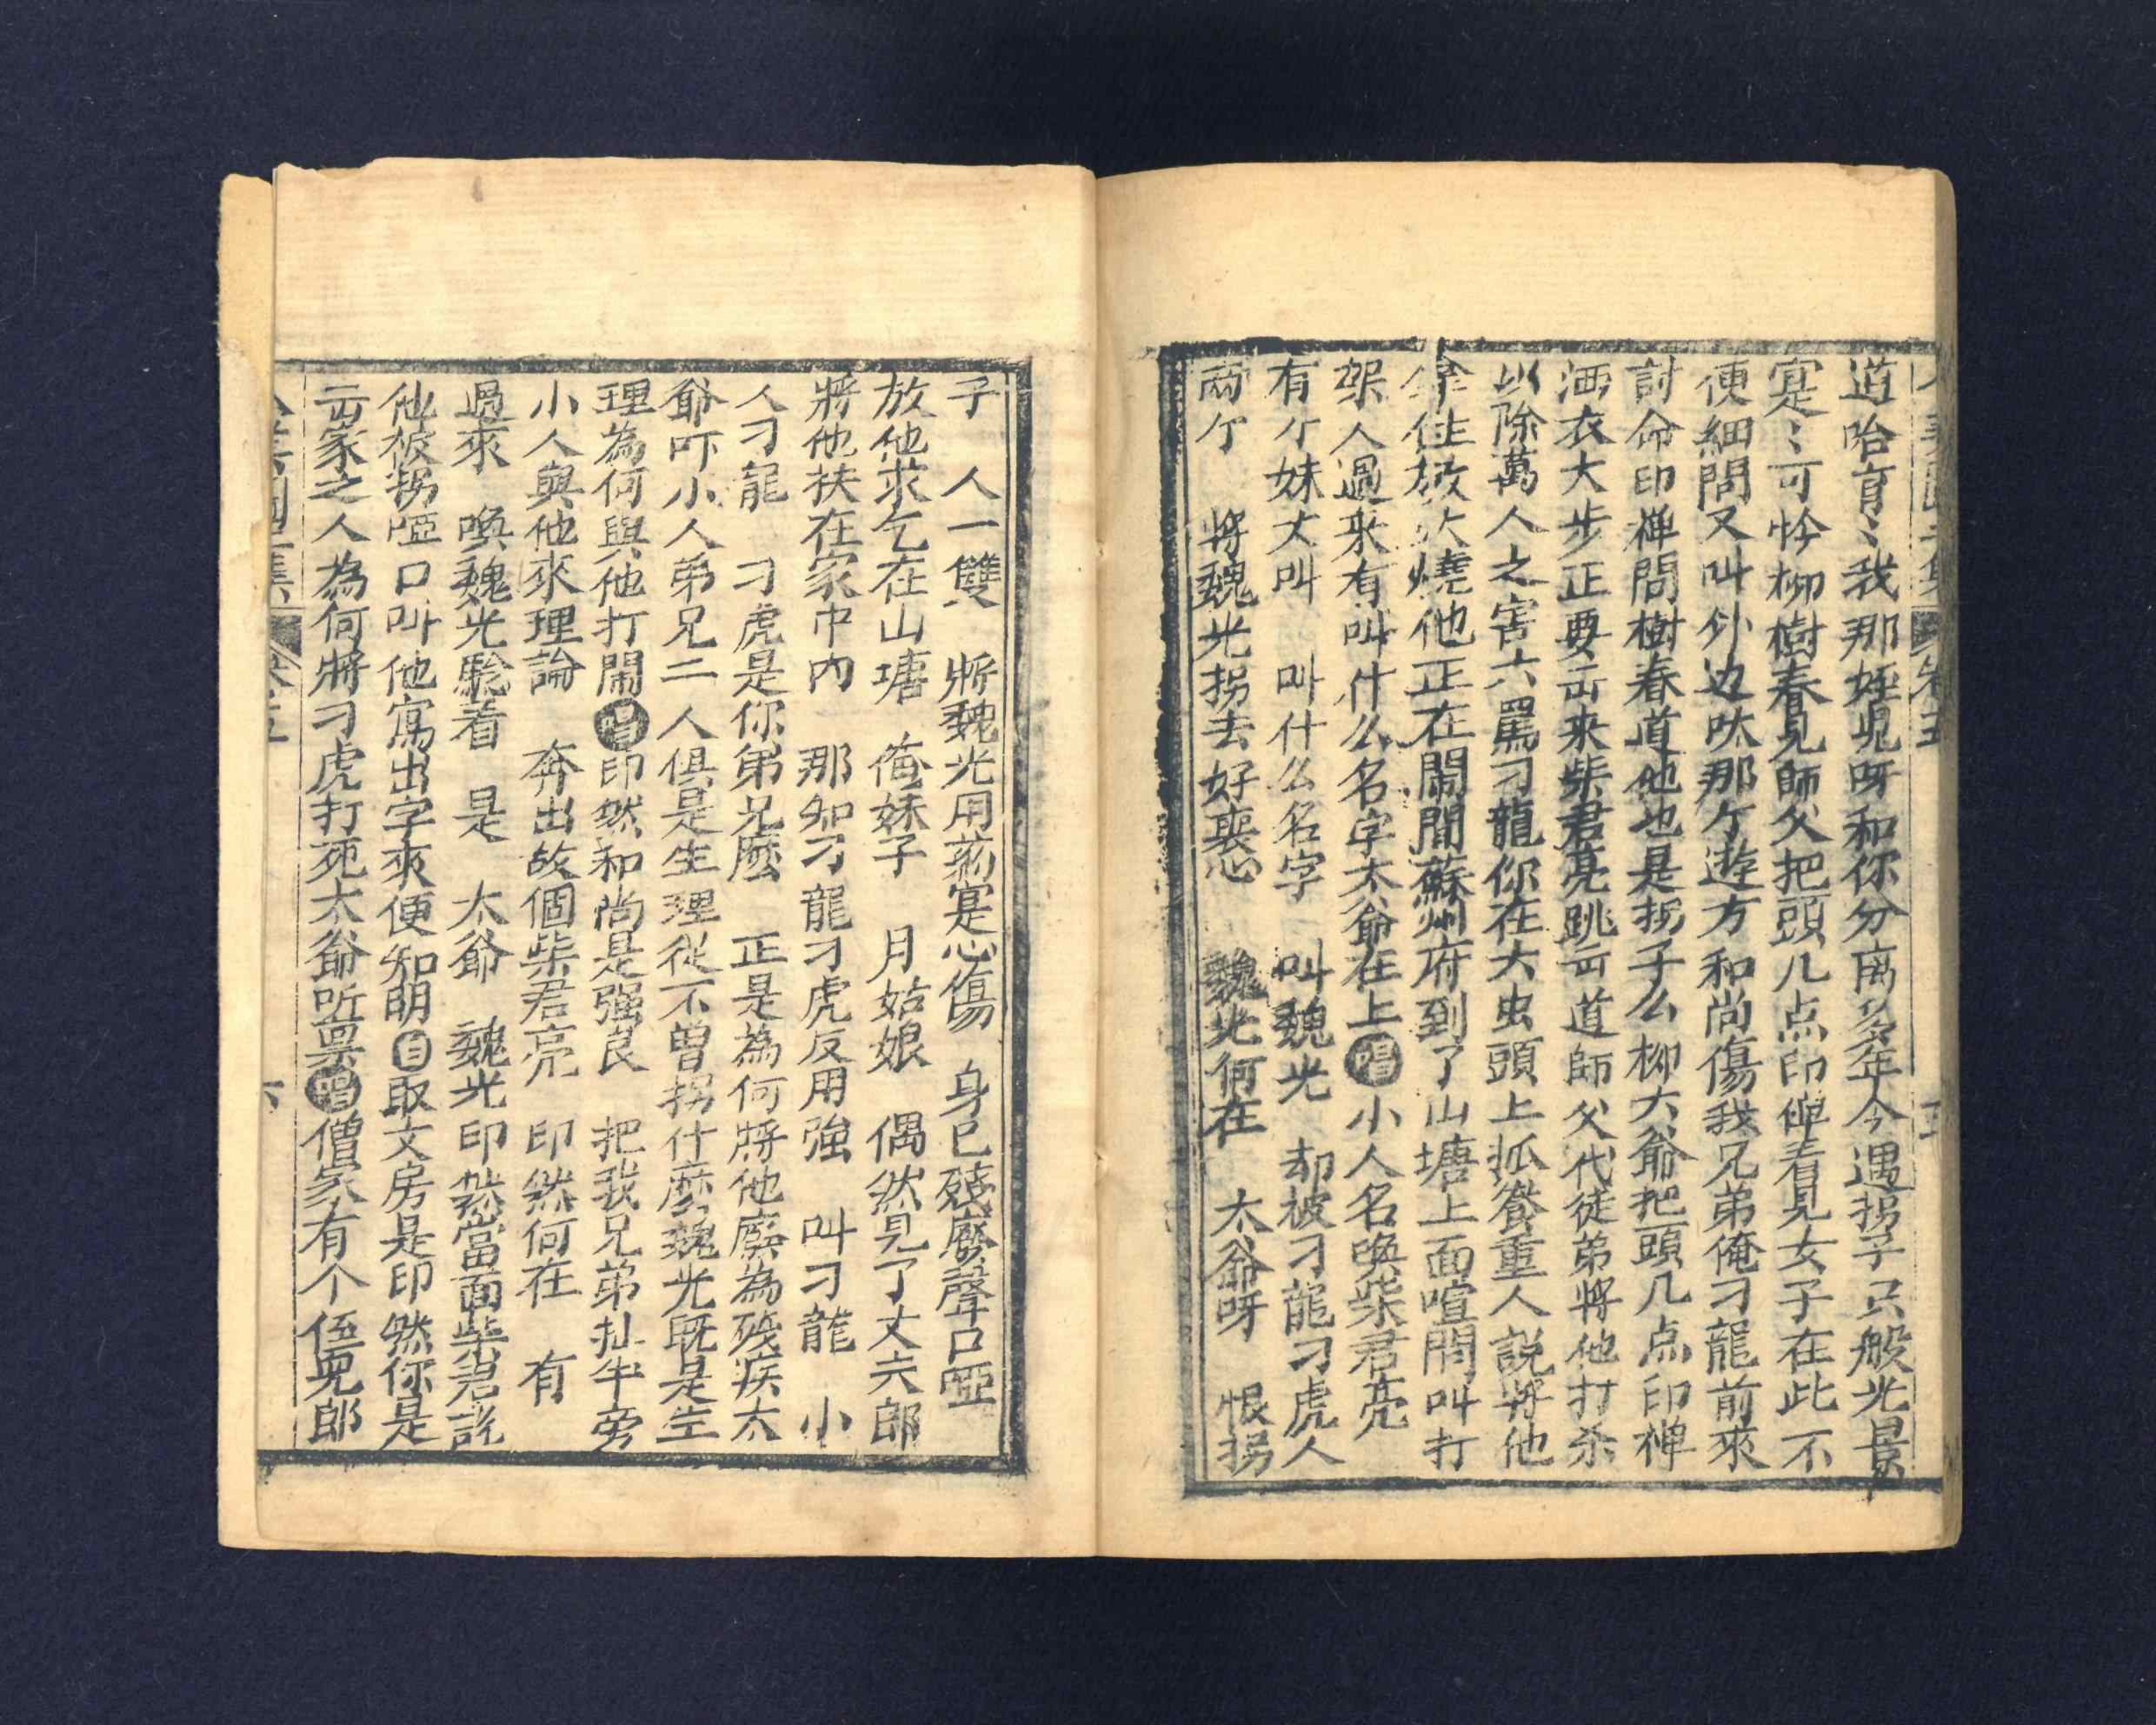 道哈育〻我那姪児呀和你分离多年今遇拐子只般光景
寔〻可怜柳樹春見師父把頭几点印禅看見女子在此不
便細問又叫外边呔那个遊方和尚傷我兄弟俺刁龍前來
討命印禅問樹春道他也是拐子么柳大爺把頭几点印禅
洒衣大步正要出来柴君亮跳出道師父代徒弟將他打杀
以除萬人之害大罵刁龍你在大虫頭上抓養重人説將他
拿住放火燒他正在鬧間蘇州府到了山塘上面喧鬧叫打
架人過来有叫什么名字太爺在上唱小人名喚柴君亮
有个妹丈叫 叫什么名字 叫魏光 却被刁龍刁虎人
兩个 將魏光拐去好喪心 魏光何在 太爺呀 恨拐
子 人一雙 將魏光用葯寔心傷 身已殘廢聲口啞
放他求乞在山塘 俺妹子 月姑娘 偶然見了丈夫郎
將他扶在家中内 那知刁龍刁虎反用強 叫刁龍 小
人刁龍 刁虎是你弟兄麽 正是為何將他廢為殘疾太
爺吓小人弟兄二人俱是生理從不曽拐什麽魏光既是生
理為何與他打鬧唱印然和尚是强良 把我兄弟扯牛旁
小人與他來理論 奔出故個柴君亮 印然何在 有
過來 喚魏光聼着 是 太爺 魏光印然當面柴君説
他被拐啞口叫他寫出字來便知明白取文房是印然你是
出家之人為何將刁虎打死太爺听禀唱僧家有个侄兒郎
卷五
六